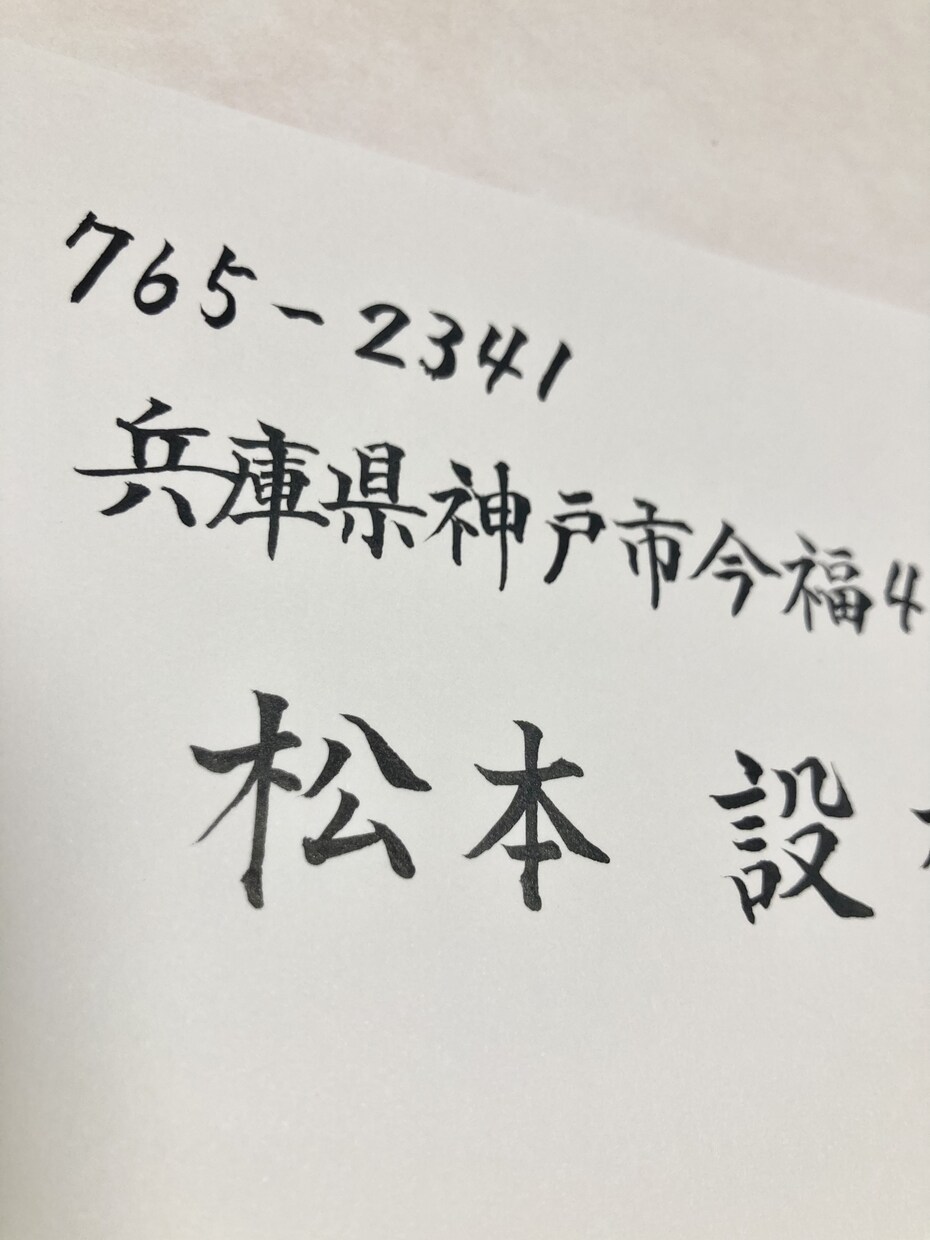 765-2341
兵庫県神戸市今福4
松本 設